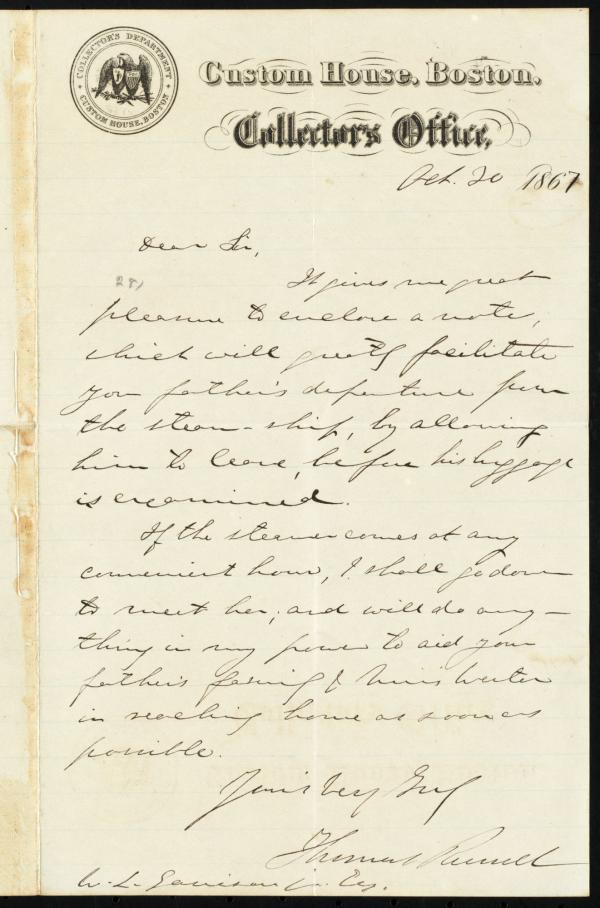 COLLECTOR'S DEPARTMENT
CUSTOM HOUSE, BOSTON
Custom House, Boston.
Collector's Office,
Oct. 20 1867
Dear Sir,
28)
It gives me great
pleasure to enclose a note,
which will greatly facilitate
your father's departure from
the steam-ship, by allowing
him to leave, before his luggage
is examined.
If the steamer comes at any
convenient hour, I shall go down
to meet her, and will do any-
thing in my power to aid your
father's family &
in reaching home as soon as
possible.
Yours very truly
Thomas Russell
W. L. Garrison jr. Esq.